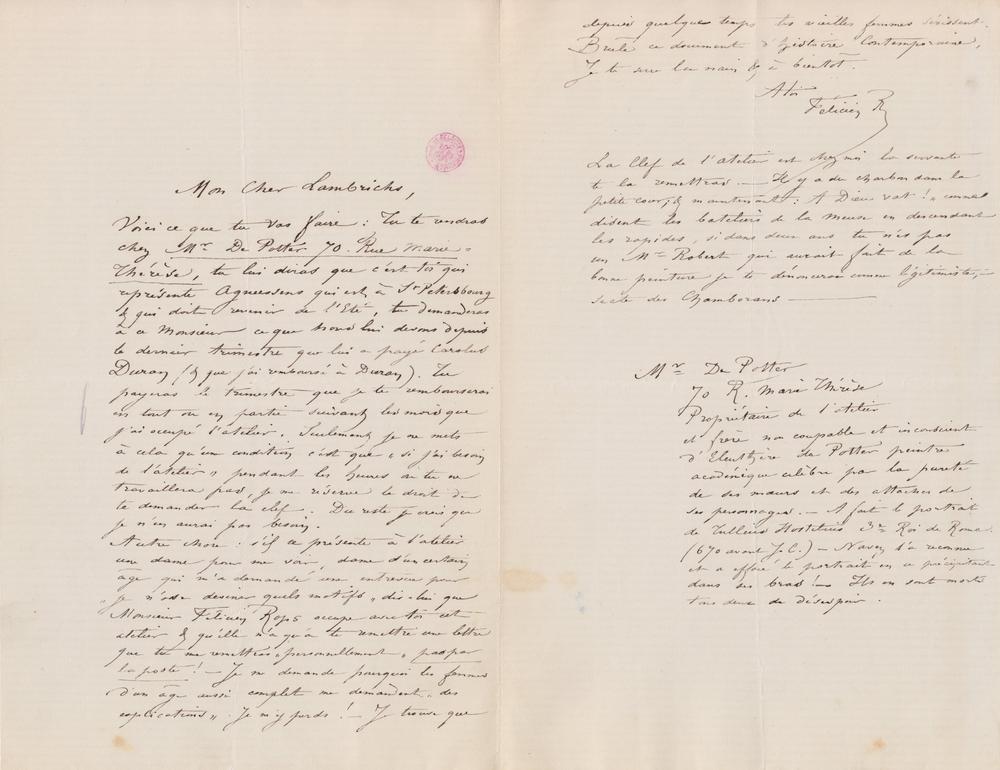 Mon Cher Lambrichs,
Voici ce que tu vas faire : Tu te rendras
chez Mr De Potter 70. Rue Marie-
Thérèse, tu lui diras que c'est toi qui
représente Agneessens qui est à St Petersbourg
& qui doit revenir de l'Eté, tu demanderas
à ce Monsieur ce que nous lui devons depuis
le dernier trimestre que lui a payé Carolus
Duran (& que j'ai remboursé à Duran). Tu
payeras le trimestre que je te rembourserai
en tout ou en partie suivant les mois que
j'ai occupé l'atelier. Seulement je ne mets
à cela qu'un condition, c'est que « si j'ai besoin
de l'atelier » pendant les heures où tu ne
travaillera pas, je me réserve le droit de
te demander la clef. Du reste je crois que
je n'en aurai pas besoin.
Autre chose : s'il se présente à l'atelier
une dame pour me voir, dame d'un certain
âge qui m'a demandé une entrevue pour
je n'ose deviner quels motifs, dis-lui que
Monsieur Félicien Rops occupe avec toi cet
atelier & qu'elle n'a qu'à te remettre une lettre
que tu me remettras « personnellement » pas par
la poste ! — Je me demande pourquoi les femmes
d'un âge aussi complet me demandent « des
explications ». Je m'y perds ! — Je trouve que
depuis quelque temps les vieilles femmes sévissent.
Brule ce document d'histoire Contemporaine,
Je te serre la main & à bientôt.
A toi
Félicien R
La Clef de l'atelier est chez moi la servante
te la remettras — Il y a du charbon dans la
petite cour, & maintenant : A Dieu vat ! » comme
disent les bateliers de la Meuse en descendant
les rapides, si dans deux ans tu n'es pas
un Mr Robert qui aurait fait de la
bonne peinture je te dénoncerai comme légitimiste, —
secte des Chamborans —
Mr De Potter
70 R. Marie Thérèse
Propriétaire de l'atelier
et frère non coupable et inconscient
d'Eleuthère de Potter peintre
académique célèbre par la pureté
de ses mœurs et des attaches de
ses personnages. — A fait le portrait
de Tullius Hostilius 3e Roi de Rome
(670 avant J.C.) — Navez l'a reconnu
et a effacé le portrait en se précipitant
dans ses bras ! — Ils en sont morts
tous deux de désespoir.